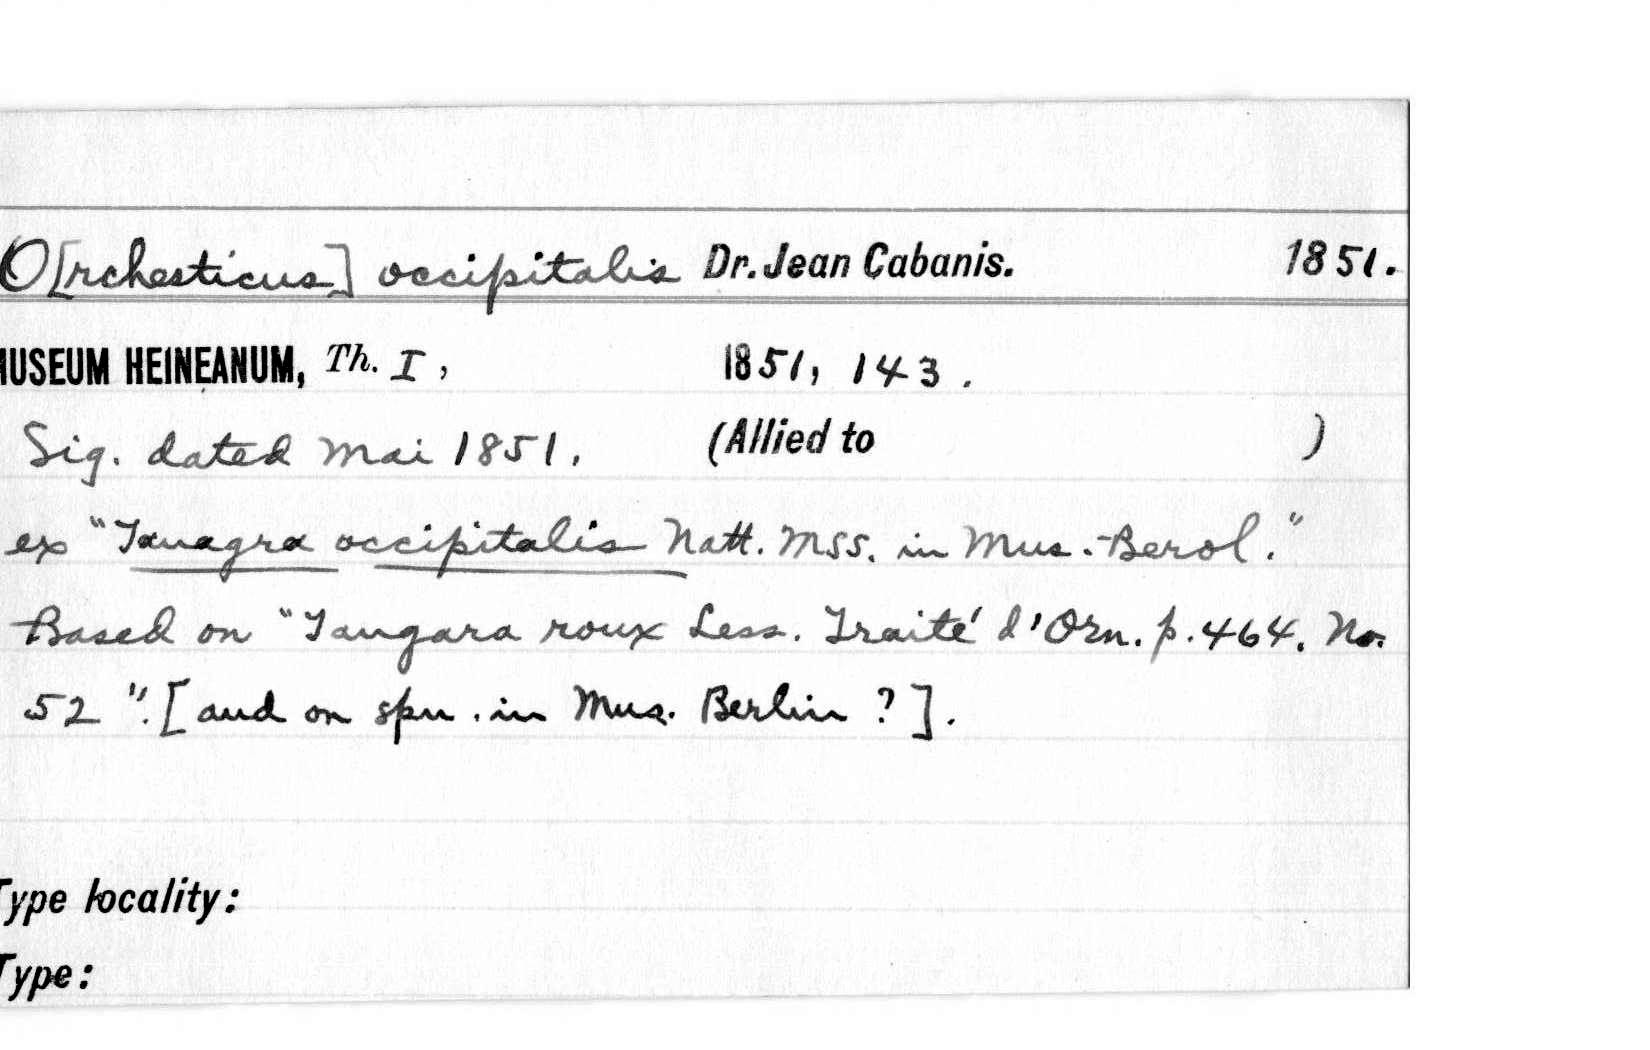 O[rchesticus] occipitalis Dr. Jean Cabanis. 1851.
MUSEUM HEINEANUM, Th. I, 1851, 143.
Sig. dated Mai 1851. (Allied to )
ex "Tanagra occipitalis Natt. MSS. in Mus.-Berol."
Based on "Tangara roux Less. Traité d'Orn. p. 464. No.
52". [and on spn. in Mus. Berlin ?].
Type locality:
Type: